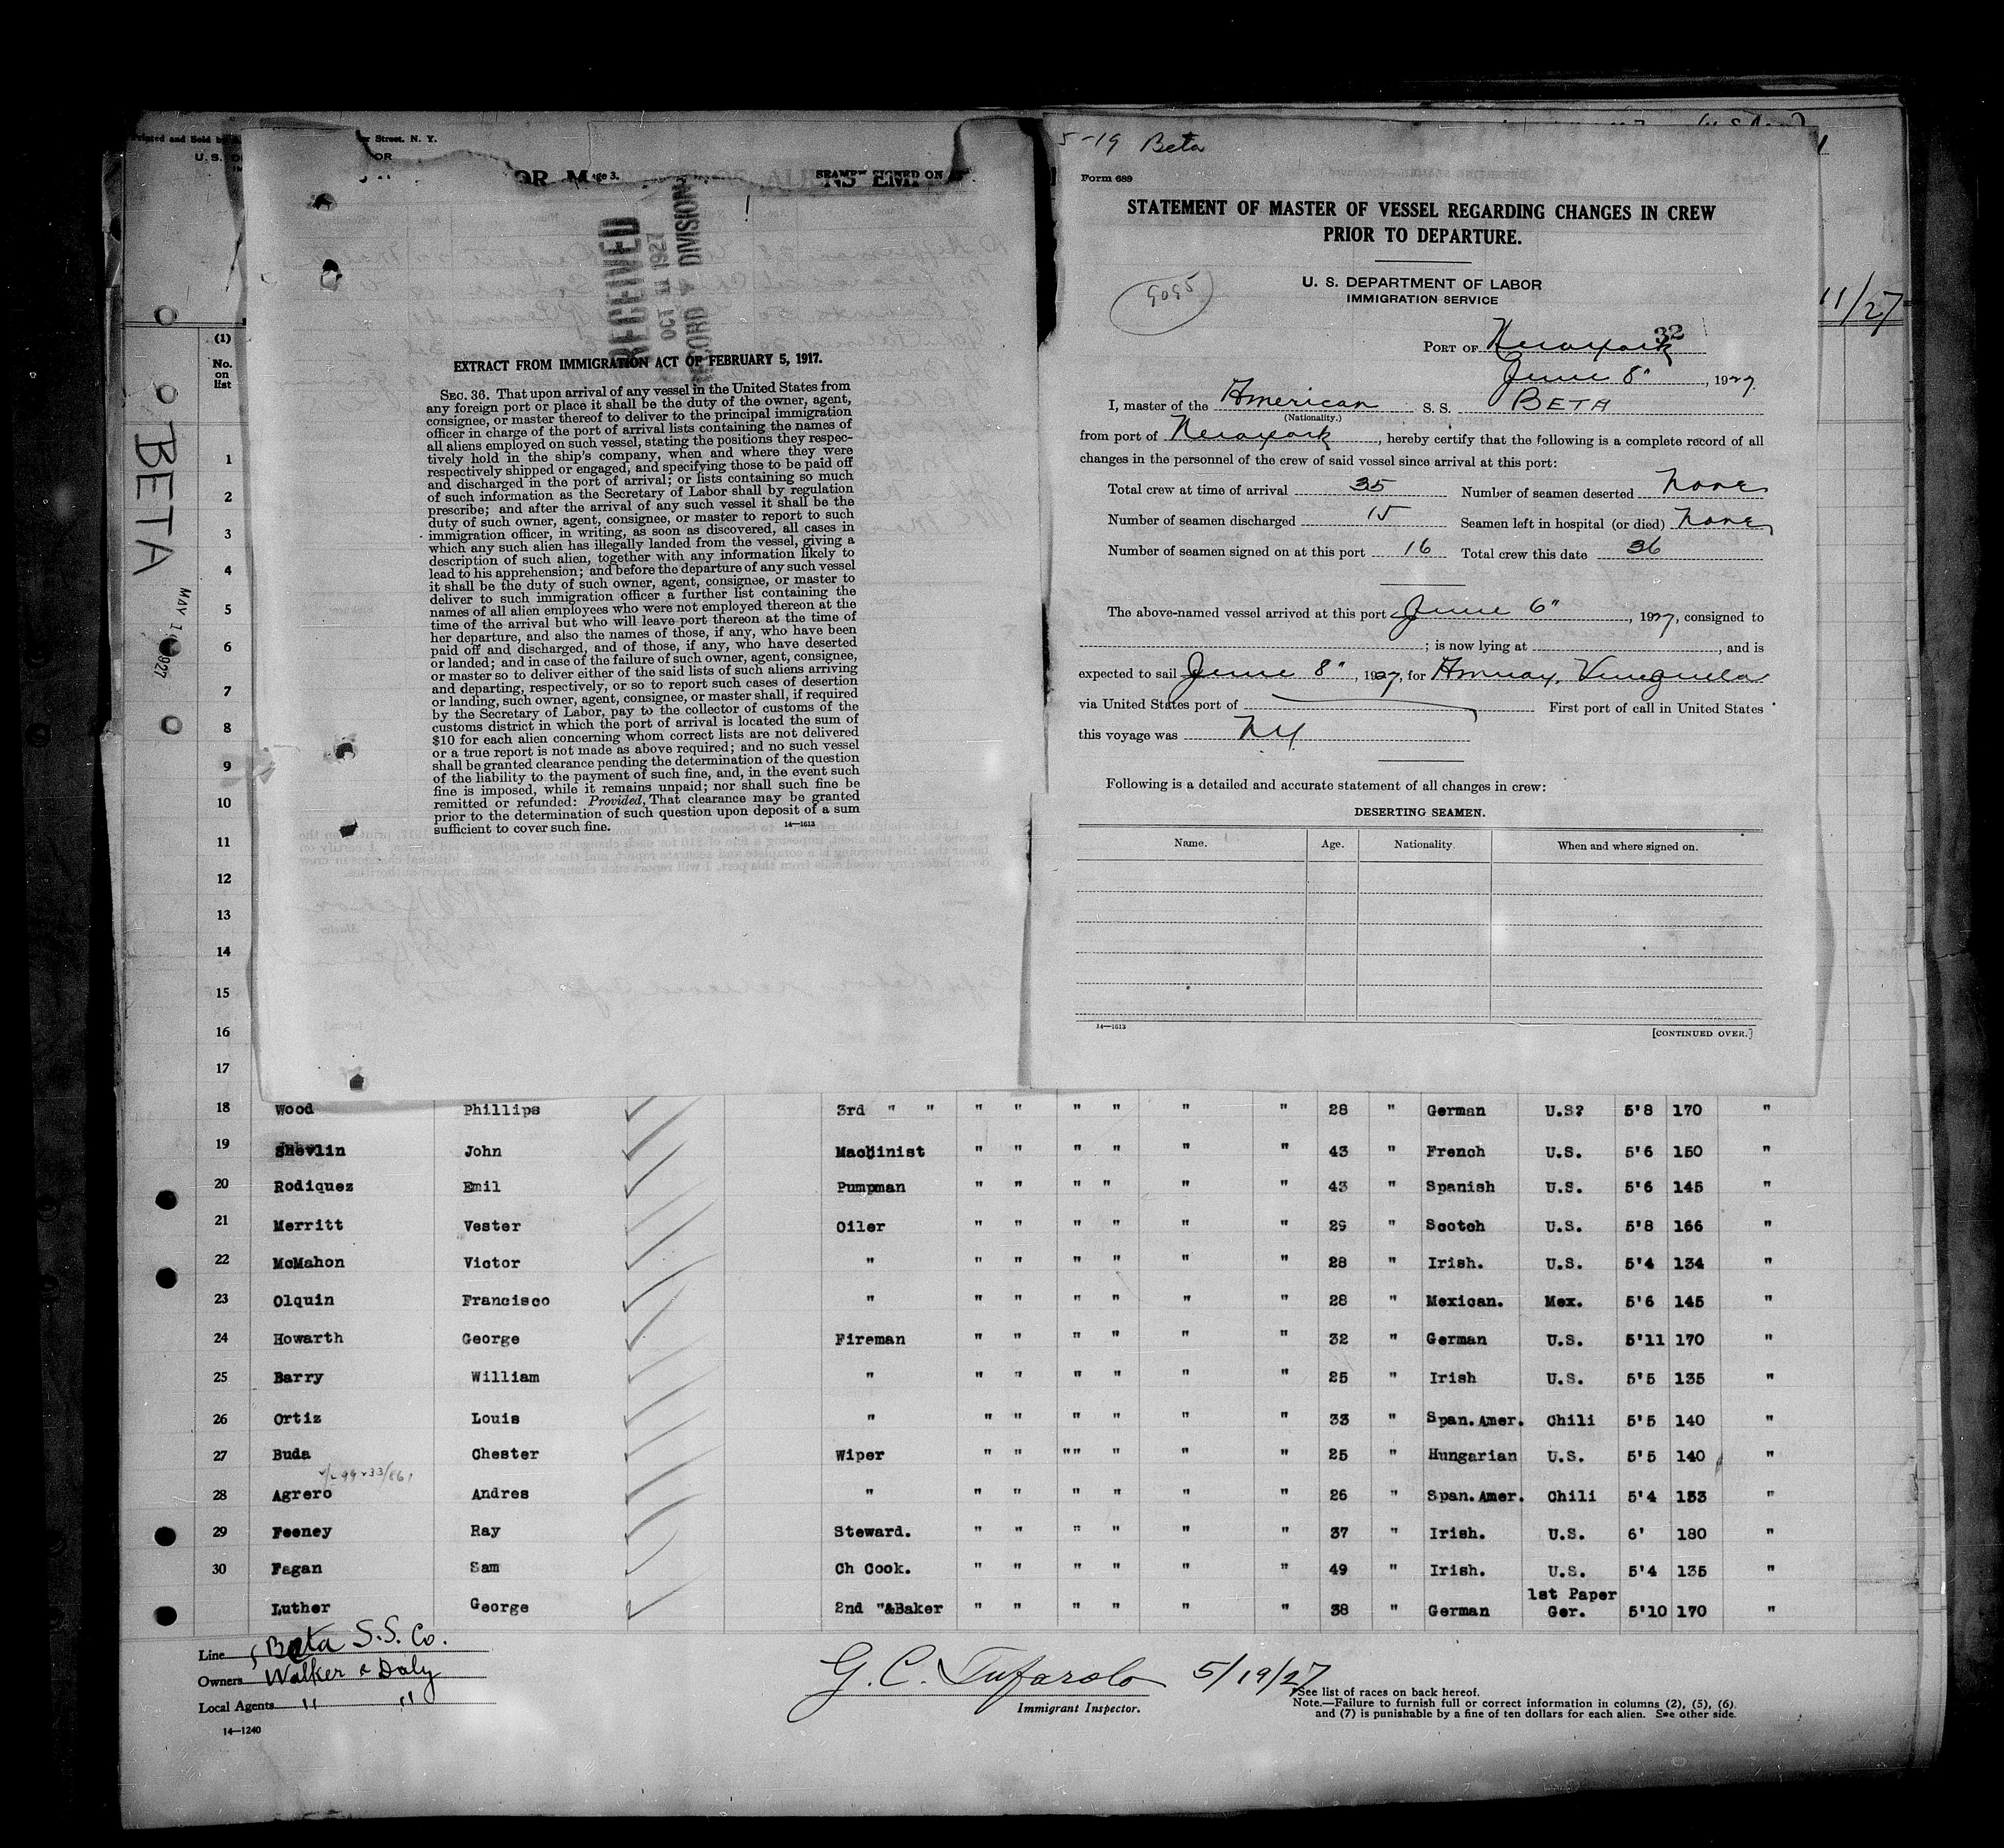 Printed and Sold by
r Street. N. Y.
U. S.
OR
age 3.
SEAMEN SIGNED ON
RECEIVED
OCT 11 1927
RECORD DIVISION
EXTRACT FROM IMMIGRATION ACT OF FEBRUARY 5, 1917.
SEC. 36. That upon arrival of any vessel in the United States from
any foreign port or place it shall be the duty of the owner, agent,
consignee, or master thereof to deliver to the principal immigration
officer in charge of the port of arrival lists containing the names of
all aliens employed on such vessel, stating the positions they respec-
tively hold in the ship's company, when and where they were
respectively shipped or engaged, and specifying those to be paid off
and discharged in the port of arrival; or lists containing so much
of such information as the Secretary of Labor shall by regulation
prescribe; and after the arrival of any such vessel it shall be the
duty of such owner, agent, consignee, or master to report to such
immigration officer, in writing, as soon as discovered, all cases in
which any such alien has illegally landed from the vessel, giving a
description of such alien, together with any information likely to
lead to his apprehension; and before the departure of any such vessel
it shall be the duty of such owner, agent, consignee, or master to
deliver to such immigration officer a further list containing the
names of all alien employees who were not employed thereon at the
time of the arrival but who will leave port thereon at the time of
her departure, and also the names of those, if any, who have been
paid off and discharged, and of those, if any, who have deserted
or landed; and in case of the failure of such owner, agent, consignee,
or master so to deliver either of the said lists of such aliens arriving
and departing, respectively, or so to report such cases of desertion
or landing, such owner, agent, consignee, or master shall, if required
by the Secretary of Labor, pay to the collector of customs of the
customs district in which the port of arrival is located the sum of
$10 for each alien concerning whom correct lists are not delivered
or a true report is not made as above required; and no such vessel
shall be granted clearance pending the determination of the question
of the liability to the payment of such fine, and, in the event such
fine is imposed, while it remains unpaid; nor shall such fine be
remitted or refunded: Provided, That clearance may be granted
prior to the determination of such question upon deposit of a sum
sufficient to cover such fine.
14—1613
5-19 Beta
Form 689
STATEMENT OF MASTER OF VESSEL REGARDING CHANGES IN CREW
PRIOR TO DEPARTURE.
U. S. DEPARTMENT OF LABOR
IMMIGRATION SERVICE
32
PORT OF Newyork
June 8", 1927
I, master of the American S. S. BETA
(Nationality.)
from port of Newyork, hereby certify that the following is a complete record of all
changes in the personnel of the crew of said vessel since arrival at this port:
Total crew at time of arrival 35 Number of seamen deserted None
Number of seamen discharged 15 Seamen left in hospital (or died) None
Number of seamen signed on at this port 16 Total crew this date 36
The above-named vessel arrived at this port June 6", 1927, consigned to
; is now lying at , and is
expected to sail June 8", 1927, for Amuay, Venezuela
via United States port of First port of call in United States
this voyage was NY
Following is a detailed and accurate statement of all changes in crew:
DESERTING SEAMEN.
Name. Age. Nationality. When and where signed on.
14—1613
[CONTINUED OVER.]
11/27
BETA
MAY 1 1927
(1)
No. on list
1
2
3
4
5
6
7
8
9
10
11
12
13
14
15
16
17
18 Wood Phillips 3rd " " " " " " " " 28 " German U.S? 5'8 170 "
19 Shevlin John Machinist " " " " " " 43 " French U.S. 5'6 150 "
20 Rodiquez Emil Pumpman " " " " " " 43 " Spanish U.S. 5'6 145 "
21 Merritt Vester Oiler " " " " " " 29 " Scotch U.S. 5'8 166 "
22 McMahon Victor " " " " " " " 28 " Irish. U.S. 5'4 134 "
23 Olquin Francisco " " " " " " " 28 " Mexican. Mex. 5'6 145 "
24 Howarth George Fireman " " " " " " 32 " German U.S. 5'11 170 "
25 Barry William " " " " " " " 25 " Irish U.S. 5'5 135 "
26 Ortiz Louis " " " " " " " 33 " Span.Amer. Chili 5'5 140 "
27 Buda Chester Wiper " " "" " " " 25 " Hungarian U.S. 5'5 140 "
28 Agrero Andres " " " " " " " 26 " Span.Amer. Chili 5'4 153 "
29 Feeney Ray Steward. " " " " " " 37 " Irish. U.S. 6' 180 "
30 Fagan Sam Ch Cook. " " " " " " 49 " Irish. U.S. 5'4 135 "
Luther George 2nd "&Baker " " " " " " 38 " German 1st Paper Ger. 5'10 170 "
Line Beta S.S. Co.
Owners Walker & Daly
Local Agents " "
14—1240
G. C. Tufarolo 5/19/27
Immigrant Inspector.
See list of races on back hereof.
Note.—Failure to furnish full or correct information in columns (2), (5), (6),
and (7) is punishable by a fine of ten dollars for each alien. See other side.